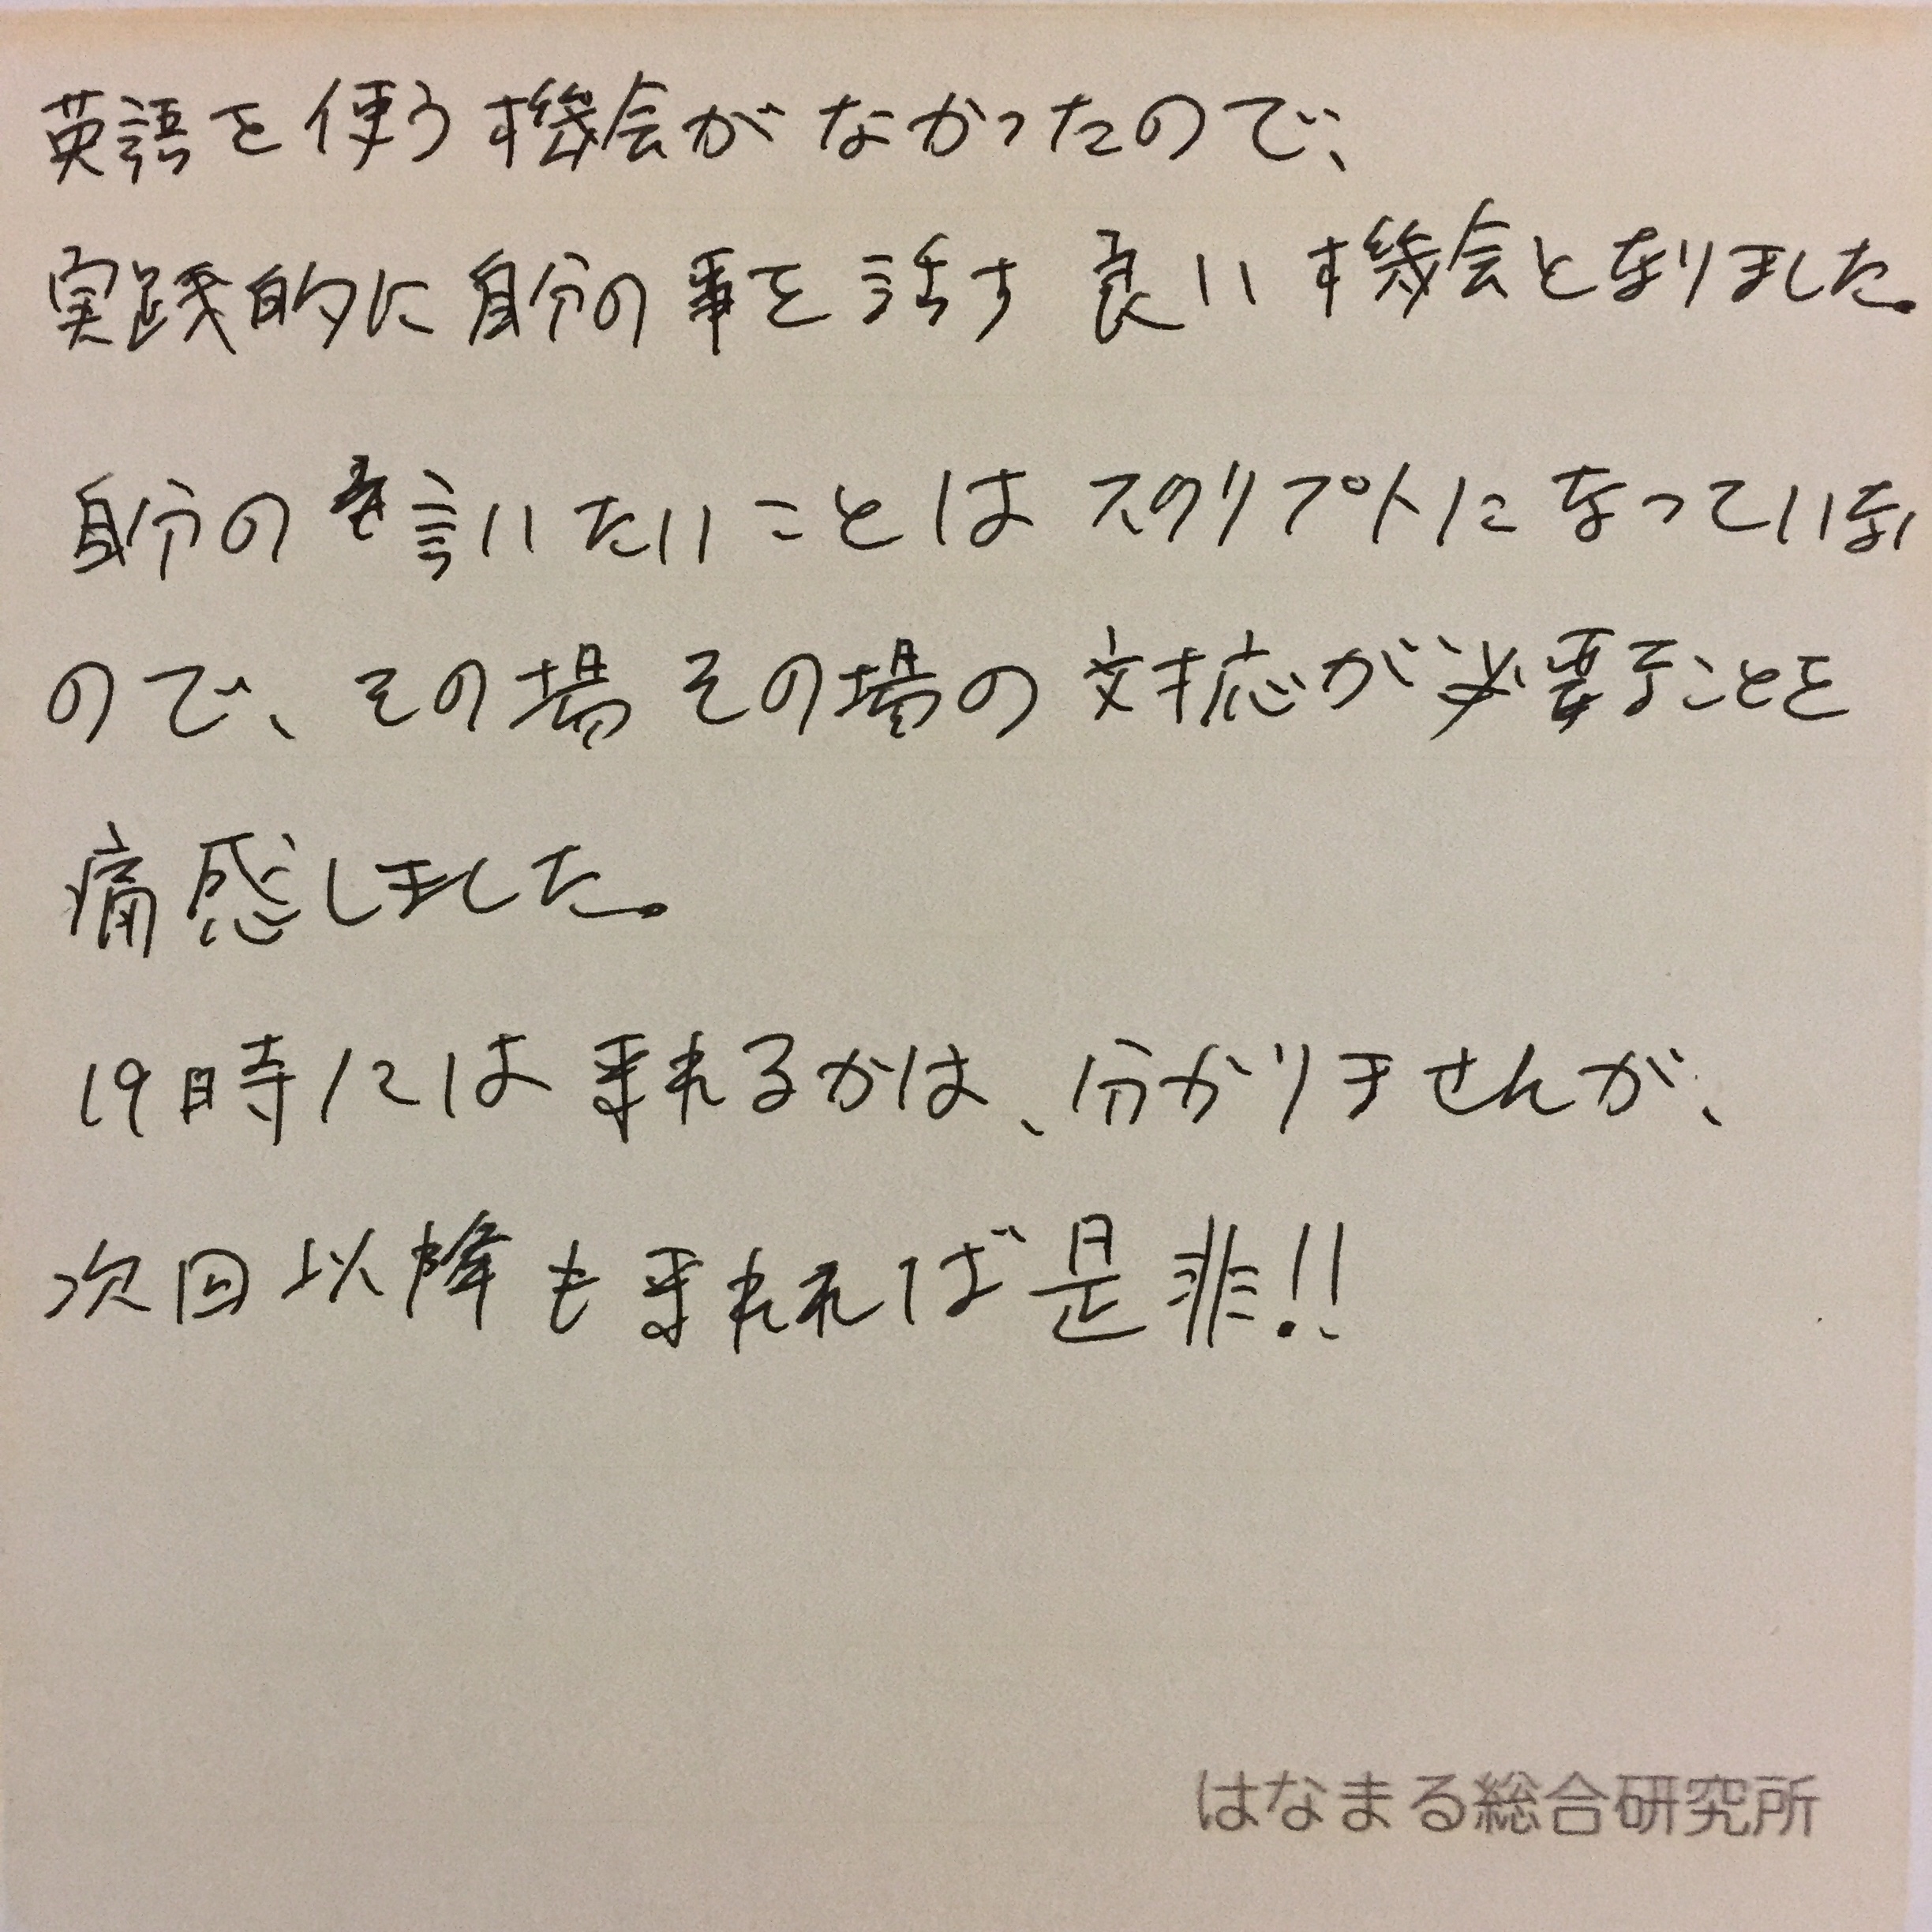 英語を使う機会がなかったので、
実践的に自分の事を話す良い機会となりました。
自分の言いたいことはスクリプトになっていない
ので、その場その場の対応が必要なことを
痛感しました。
19時には来れるかは、分かりませんが、
次回以降も来れれば是非!!
はなまる総合研究所